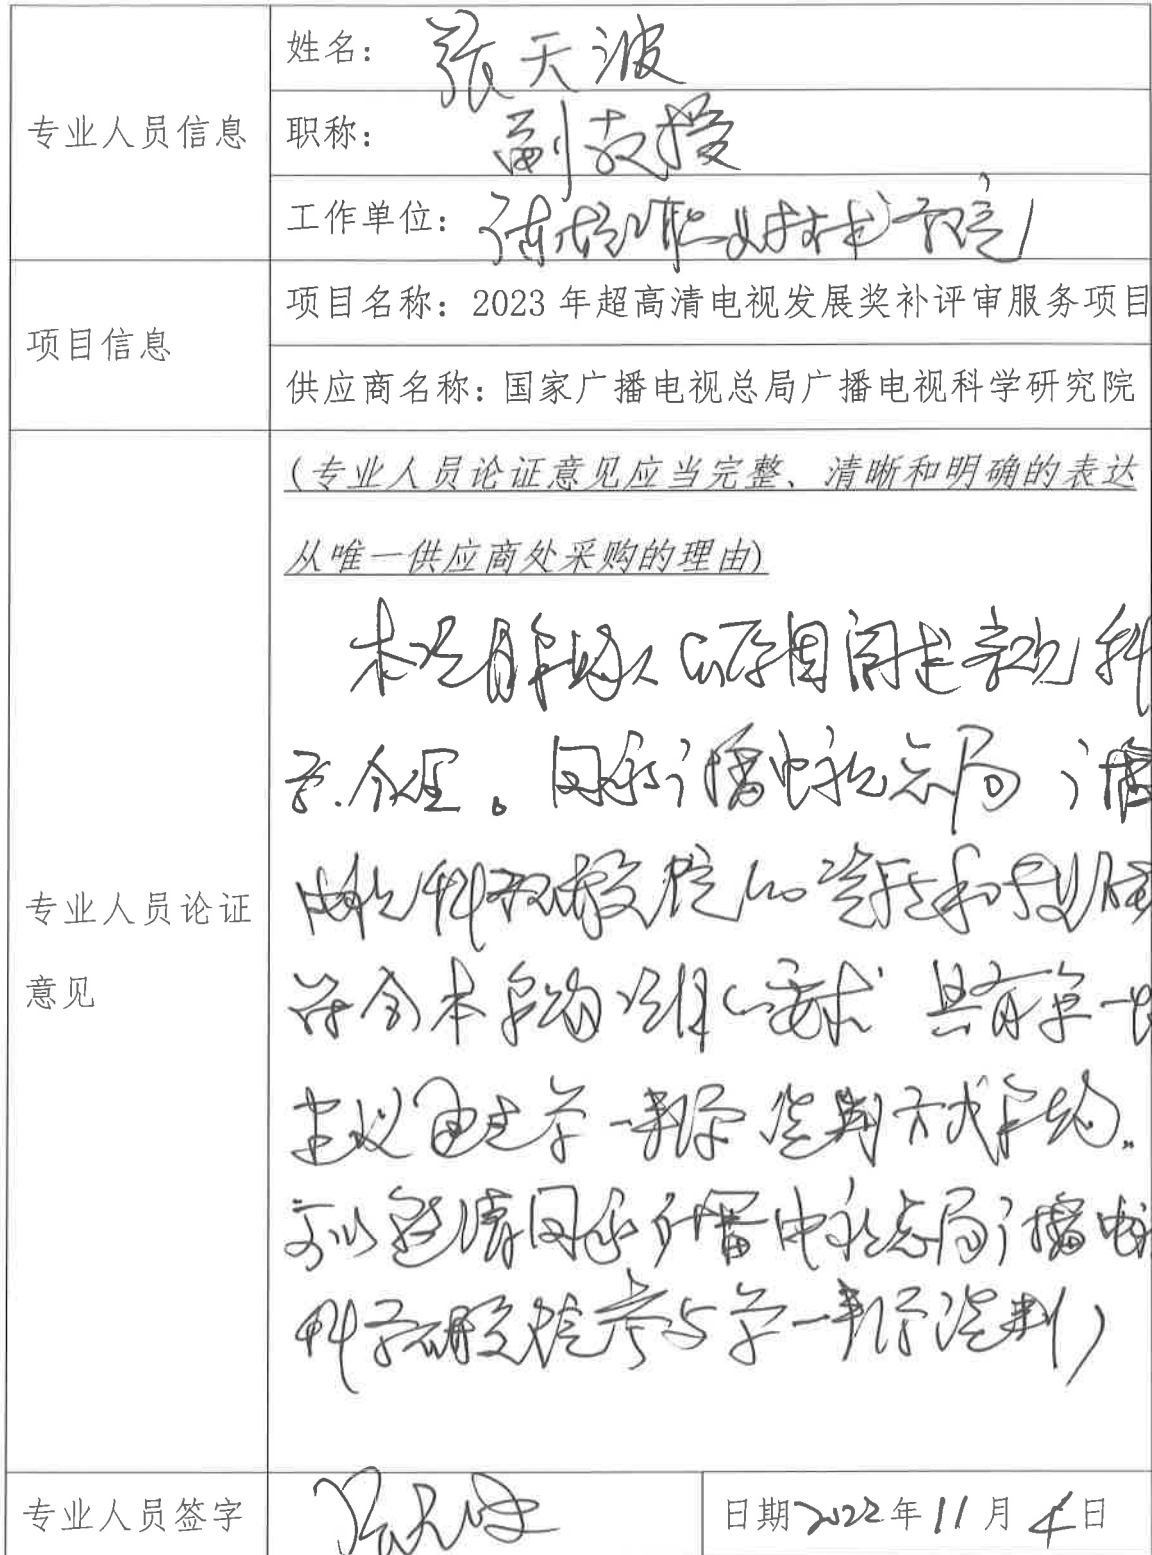 专业人员信息
姓名：张天波
职称：副教授
工作单位：职业技术学院
项目信息
项目名称：2023年超高清电视发展奖补评审服务项目
供应商名称：国家广播电视总局广播电视科学研究院
专业人员论证
意见
(专业人员论证意见应当完整、清晰和明确的表达
从唯一供应商处采购的理由)
本项目采购
合理。国家广播电视总局 广播
电视科学研究院的资质和
符合本采购项目的要求 具有单一性
建议通过单一来源谈判方式采购。
可以邀请国家广播电视总局广播电视
科学研究院参与单一来源谈判
专业人员签字 张天波
日期 2022年11月4日